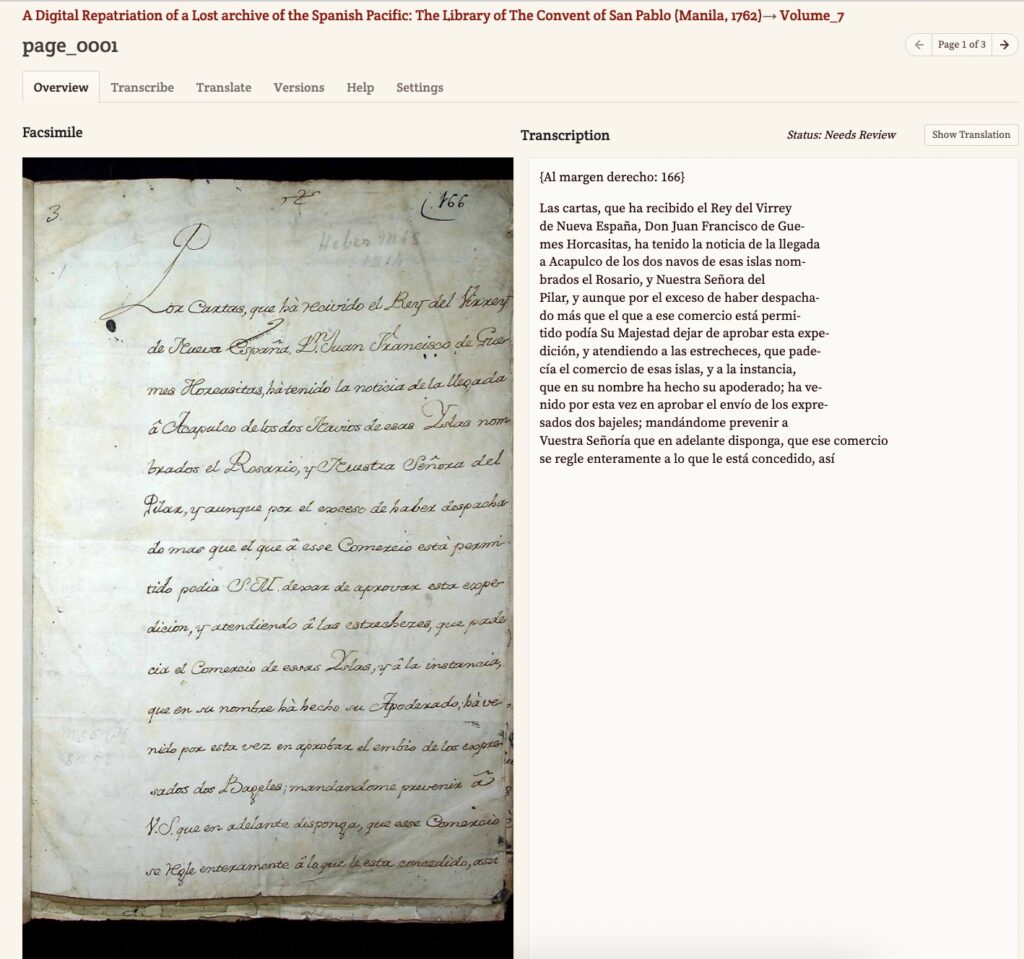 A Digital Repatriation of a Lost archive of the Spanish Pacific: The Library of The Convent of San Pablo (Manila, 1762)→ Volume_7
page_0001
← Page 1 of 3 →
Overview Transcribe Translate Versions Help Settings
Facsimile
3.
166
Heber MSS
Por Cartas, que hà recivido el Rey del Virrey
de Nueva España, Dn. Juan Francisco de Gue-
mes Horcasitas, hà tenido la noticia de la llegada
â Acapulco de los dos Navios de esas Yslas nom
brados el Rosario, y Nuestra Señora del
Pilar, y aunque por el exceso de haber despacha-
do mas que el que â esse Comercio està permi-
tido podia S.M. dexar de aprovar esta expe-
dicion, y atendiendo â las estrechezes, que pade-
cia el Comercio de essas Yslas, y â la instancia,
que en su nombre hà hecho su Apoderado, hà ve-
nido por esta vez en aprobar el embio de los expre-
sados dos Bageles; mandandome prevenir â
V.S. que en adelante disponga, que esse Comercio
se regle enteramente â lo que le esta concedido, assi
Transcription
Status: Needs Review
Show Translation
{Al margen derecho: 166}
Las cartas, que ha recibido el Rey del Virrey
de Nueva España, Don Juan Francisco de Gue-
mes Horcasitas, ha tenido la noticia de la llegada
a Acapulco de los dos navos de esas islas nom-
brados el Rosario, y Nuestra Señora del
Pilar, y aunque por el exceso de haber despacha-
do más que el que a ese comercio está permi-
tido podía Su Majestad dejar de aprobar esta expe-
dición, y atendiendo a las estrecheces, que pade-
cía el comercio de esas islas, y a la instancia,
que en su nombre ha hecho su apoderado; ha ve-
nido por esta vez en aprobar el envío de los expre-
sados dos bajeles; mandándome prevenir a
Vuestra Señoría que en adelante disponga, que ese comercio
se regle enteramente a lo que le está concedido, así